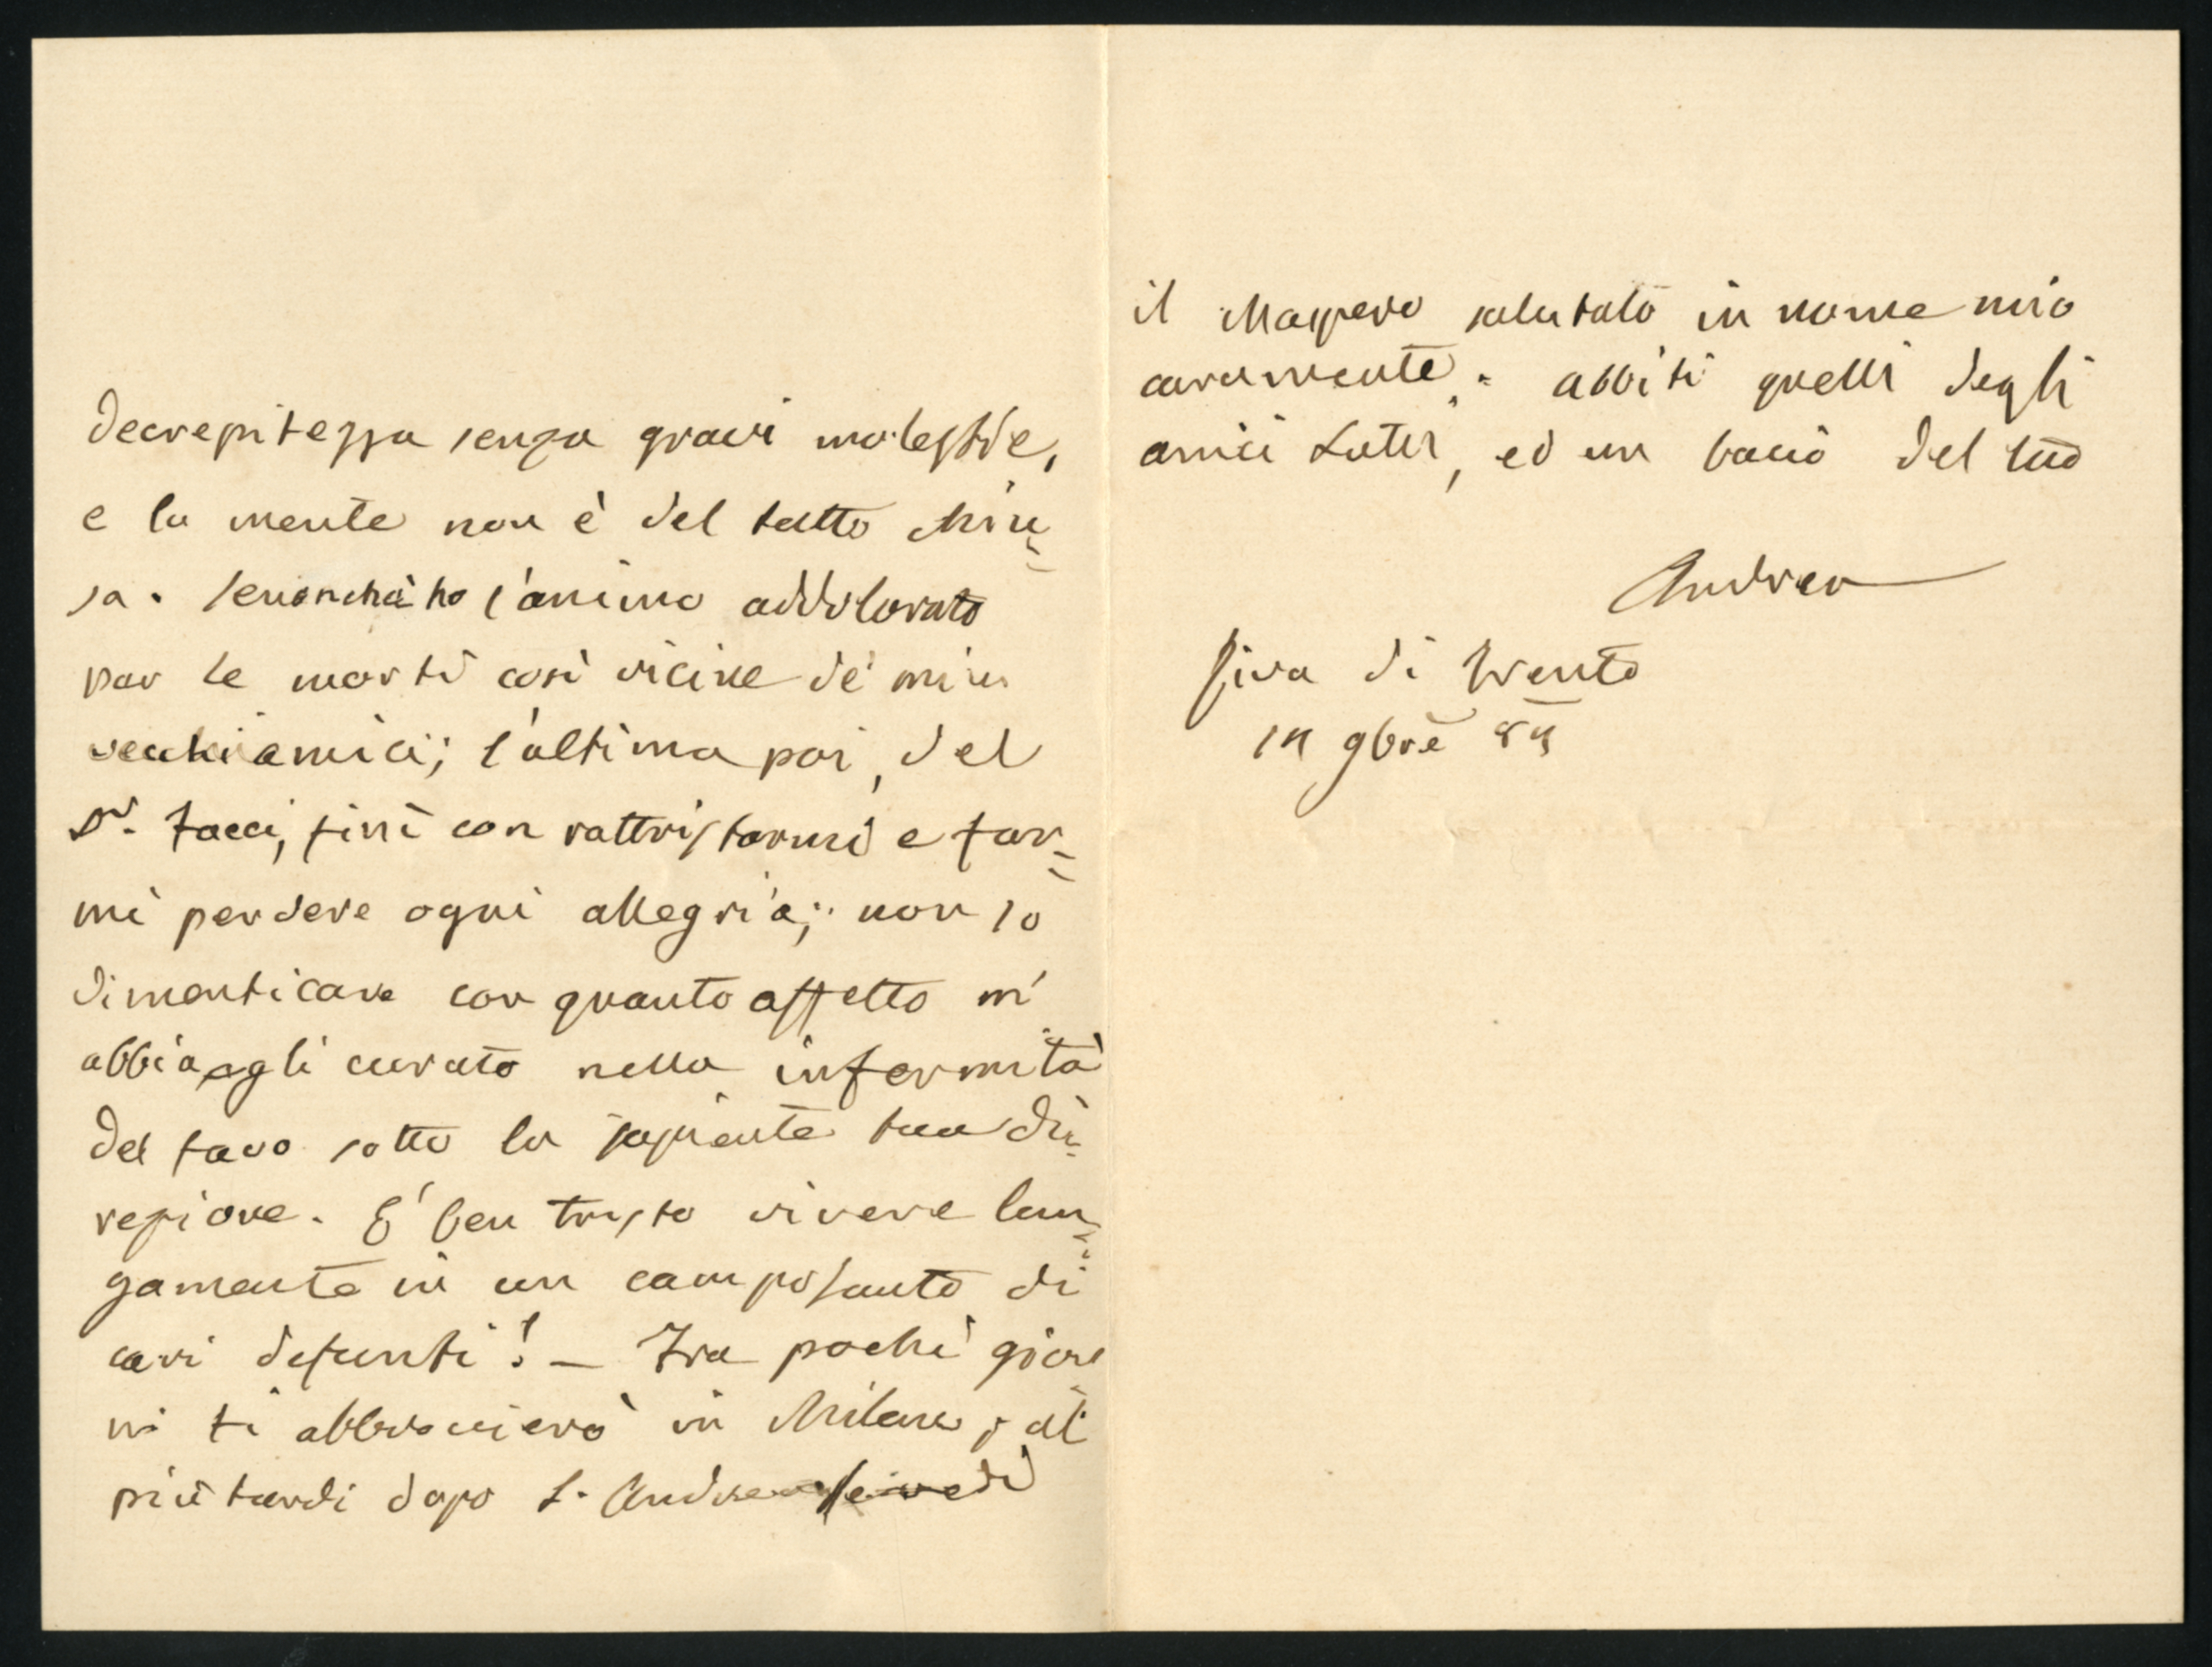 decrepitezza senza gravi molestie,
e la mente non è del tutto chiu=
sa. Senonchè ho l'animo addolorato
per le morti così vicine de' miei
vecchi amici; l'ultima poi, del
Dr. Tacci, finì con rattristarmi e far=
mi perdere ogni allegria; non so
dimenticare con quanto affetto m'
abbia egli curato nella infermità
del favo sotto la sapiente tua di=
rezione. E' ben tristo vivere lun=
gamente in un camposanto di
cari defunti! – Fra pochi gior=
ni ti abbraccierò in Milano, al
più tardi dopo S. Andrea. Se vedi
il Maspero salutalo in nome mio
caramente. abbiti quelli degli
amici Lutti, ed un bacio del tuo
Andrea
Riva di Trento
9bre